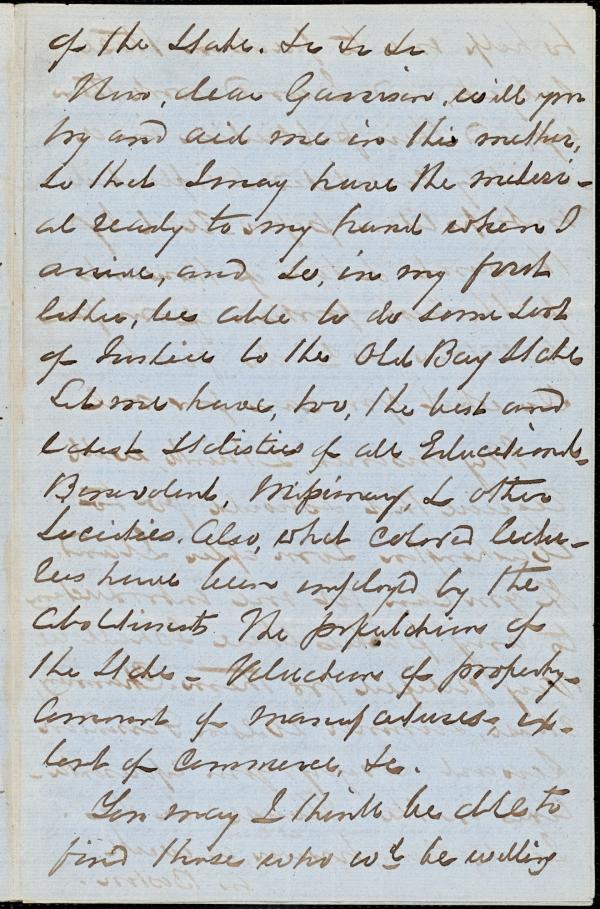 of the State. &c &c &c
Now, dear Garrison, will you
try and aid me in this matter,
so that I may have the materi-
al ready to my hand when I
arrive, and so, in my first
letter, be able to do some sort
of Justice to the Old Bay State
Let me have, too, the best and
latest Statistics of all Educational,
Benevolent, Missionary, & other
Societies. Also, what colored lectu-
rers have been employed by the
Abolitionists The populations of
the State - Valuations of property -
Amount of manufactures - ex-
tent of Commerce, &c.
You may I think be able to
find those who wd. be willing